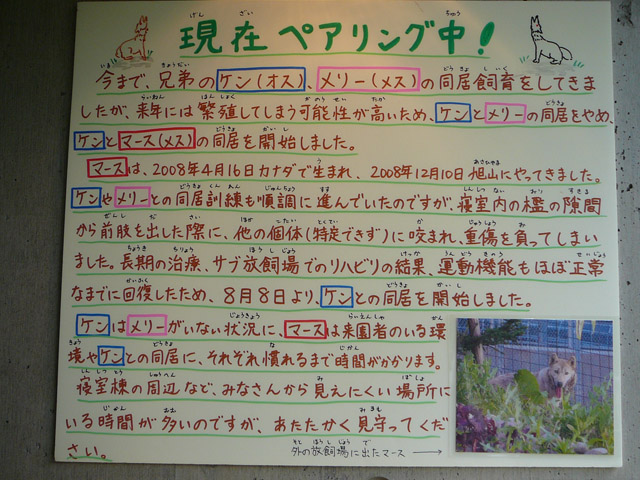 現在 ペアリング中!
今まで、兄弟のケン(オス)、メリー(メス)の同居飼育をしてきま
したが、来年には繁殖してしまう可能性が高いため、ケンとメリーの同居をやめ、
ケンとマース(メス)の同居を開始しました。
マースは、2008年4月16日カナダで生まれ、2008年12月10日旭山にやってきました。
ケンやメリーとの同居訓練も順調に進んでいたのですが、寝室内の檻の隙間
から前肢を出した際に、他の個体(特定できず)に咬まれ、重傷を負ってしまい
ました。長期の治療、サブ放飼場でのリハビリの結果、運動機能もほぼ正常
なまでに回復したため、8月8日より、ケンとの同居を開始しました。
ケンはメリーがいない状況に、マースは来園者のいる環
境やケンとの同居に、それぞれ慣れるまで時間がかかります。
寝室棟の周辺など、みなさんから見えにくい場所に
いる時間が多いのですが、あたたかく見守ってくだ
さい。
外の放飼場に出たマース →